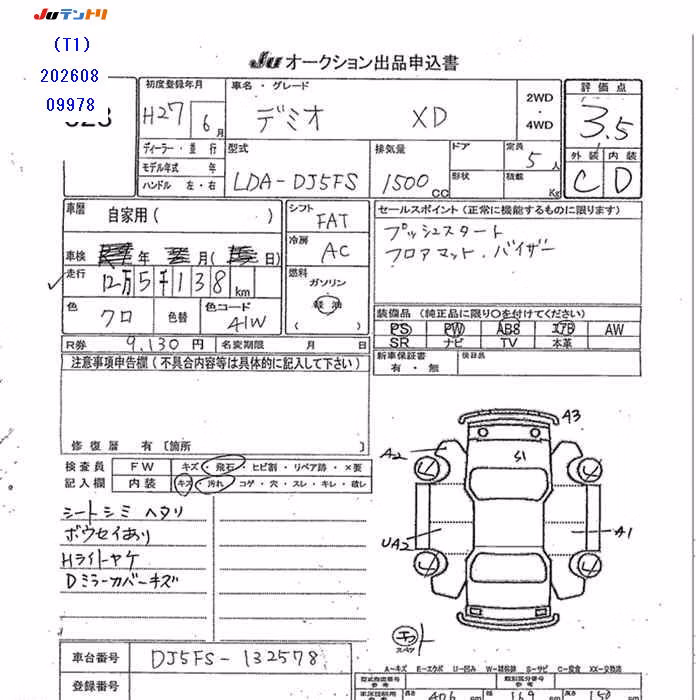 Juテントリ
(T1)
202608
09978
Ju オークション出品申込書
初度登録年月
H27 6 月
車名・グレード
デミオ XD
2WD
・
4WD
評価点
3.5
外装 内装
C D
ディーラー・並行
モデル年式 年
ハンドル 左・右
型式
LDA-DJ5FS
排気量
1500 CC
ドア
形状
定員
5 人
積載
Kg
車歴
自家用( )
車検 年 月( 日)
走行
12万5千138 km
シフト
FAT
冷房
AC
燃料
ガソリン
軽油
( )
色
クロ
色替
色コード
41W
R券 9,130 円 名変期限 月 日
セールスポイント(正常に機能するものに限ります)
プッシュスタート
フロアマット.バイザー
装備品(純正品に限り〇を付けてください)
PS PW ABS エアB AW
SR ナビ TV 本革
新車保証書
有・無
注意事項申告欄(不具合内容等は具体的に記入して下さい)
修復歴 有〔箇所 〕
検査員
記入欄
FW キズ・飛石・ヒビ割・リペア跡・×要
内装 キズ・汚れ・コゲ・穴・スレ・キレ・破レ
シートシミ ヘタリ
ボウセイあり
Hライトヤケ
Dミラーカバーキズ
A3
A2
S1
UA2
A1
スペア
車台番号 DJ5FS-132578
登録番号
A-キズ E-エクボ U-凹み W-補修跡 S-サビ C-腐食 XX-交換済
406 cm 169 cm 150 cm